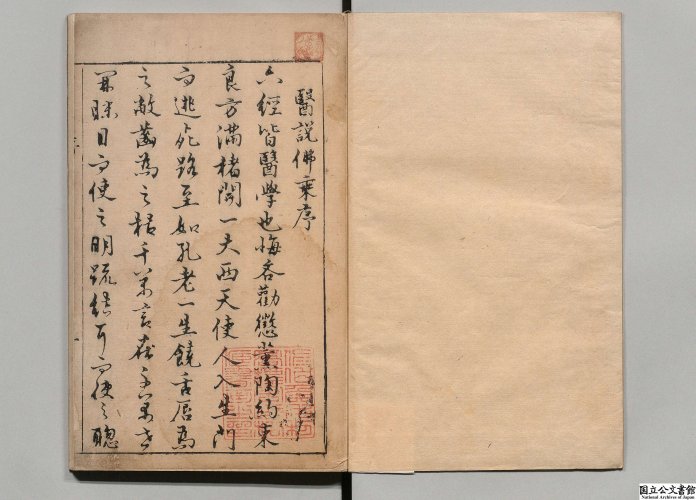 醫說佛乘序
六經皆醫學也悔吝勸懲薰陶約束
良方滿楮間一夫西天使人入生門
而逃死路至如孔老一生饒舌唇為
之敝齒為之枯千萬言在千萬世
眯目而使之明疏錯耳而使之聰
国立公文書館
National Archives of Japan